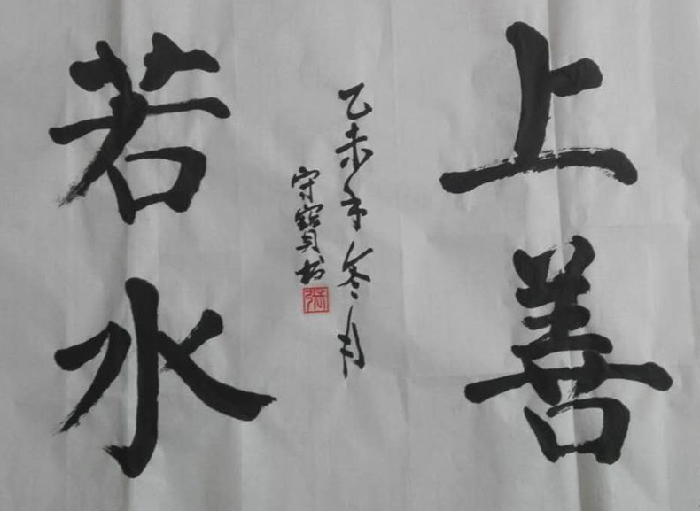 上善
乙未年冬月
守寶书
若水